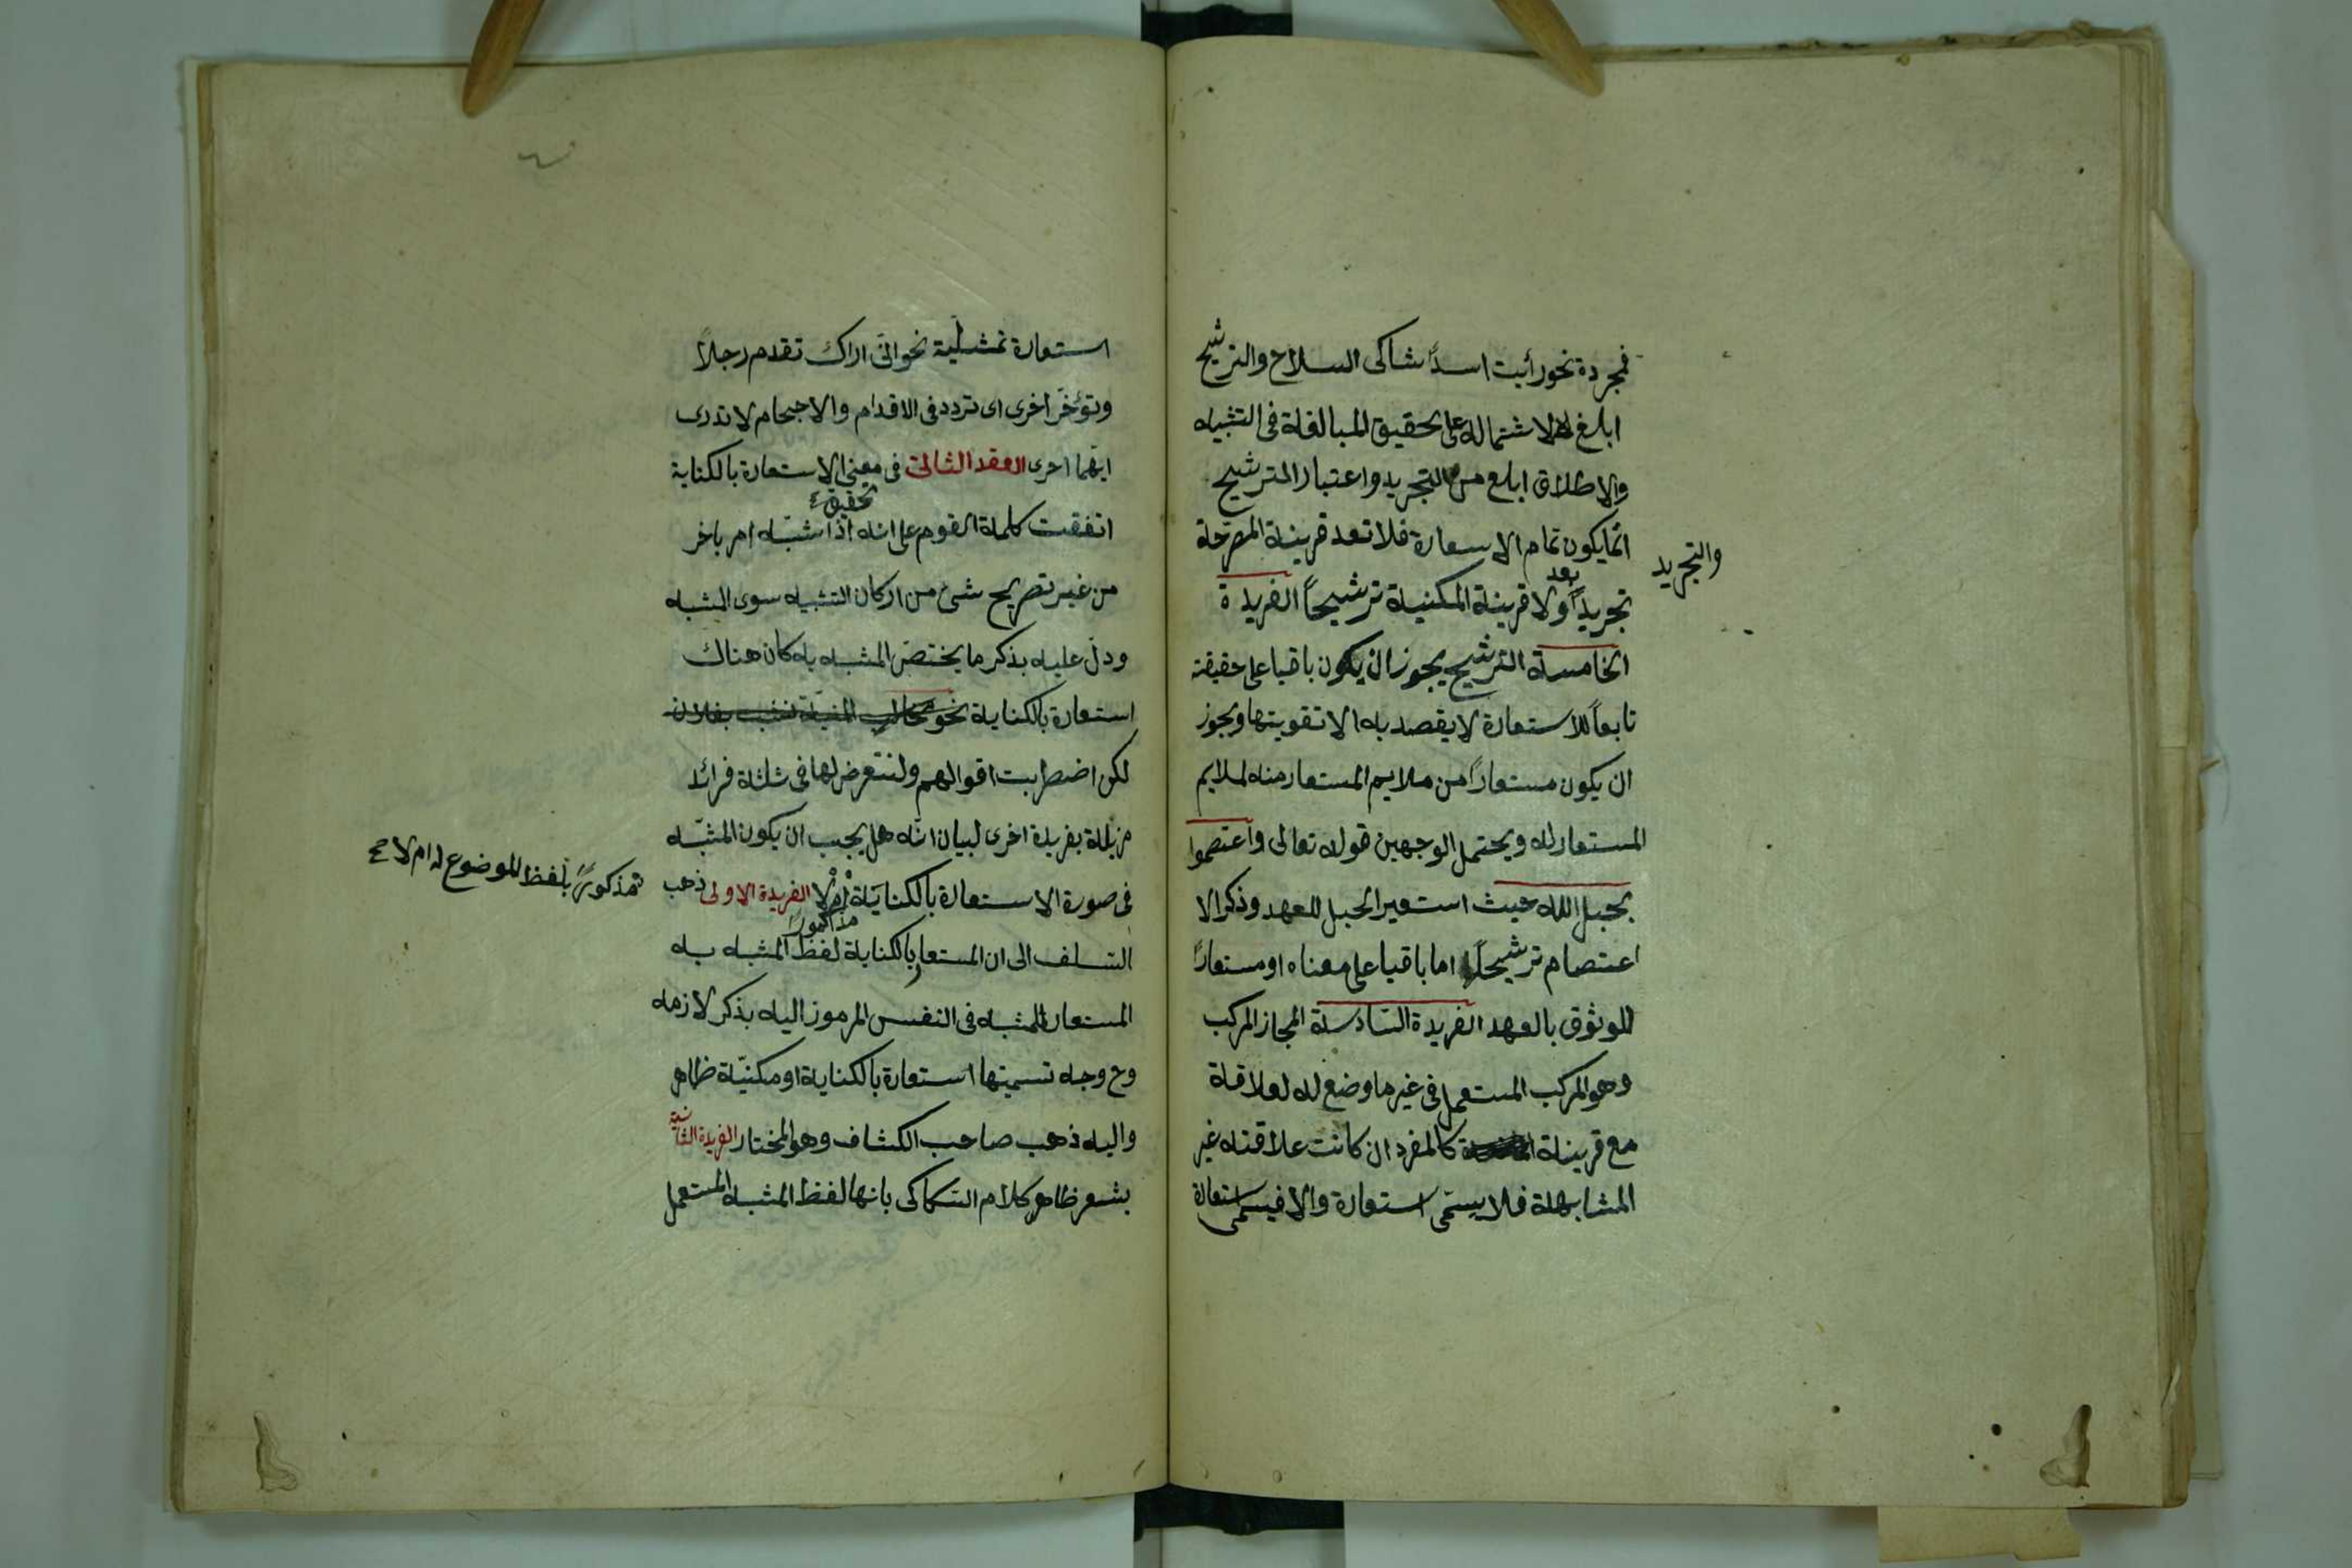 فمجردة نحو رأيت اسدًا شاكى السلاح والترشيح
ابلغ لاشتماله على تحقيق المبالغة فى التشبيه
والاطلاق ابلغ من التجريد واعتبار الترشيح
والتجريد
انما يكون تمام الاسعارة فلا تعد قرينة المصرحة
بعد
تجريدًا ولا قرينة المكنية ترشيحًا الفريدة
الخامسة الترشيح يجوز ان يكون باقيا على حقيقته
تابعاً للاستعارة لا يقصد به الا تقويتها ويجوز
ان يكون مستعارًا من ملايم المستعار منه لملايم
المستعار له ويحتمل الوجهين قوله تعالى واعتصموا
بحبل الله حيث استعير الحبل للعهد وذكر الا
عتصام ترشيحا اما باقيا على معناه او مستعارًا
للوثوق بالعهد الفريدة السادسة المجاز المركب
وهو المركب المستعمل فى غير ما وضع له لعلاقة
مع قرينة كالمفرد ان كانت علاقته غير
المشابهة فلا يسمّى استعارة والا فيسمى استعارة
استعارة تمثيلية نحو انّى اراك تقدم رجلاً
وتؤخر اخرى اى تردد فى الاقدام والاحجام لا تدرى
ايهما احرى العقد الثالث فى معنى الاستعارة بالكناية
تحقيق
اتفقت كلمة القوم على انه اذا شبّه امر باخر
من غير تصريح شئ من اركان التشبيه سوى المشبه
ودل عليه بذكر ما يختصّ المشبه به كان هناك
استعارة بالكناية نحو مخالب المنية نشبت بفلان
لكن اضطربت اقوالهم ولنتعرض لها فى ثلثة فرائد
مزيلة بفريدة اخرى لبيان انّه هل يجب ان يكون المشبّه
مذكورًا بلفظ الموضوع له ام لا
فى صورة الاستعارة بالكناية ام لا الفريدة الاولى ذهب
مذكورًا
السلف الى ان المستعار بالكناية لفظ المشبه به
المستعار للمشبه فى النفس المرموز اليه بذكر لازمه
وح وجه تسميتها استعارة بالكناية او مكنيّة ظاهر
واليه ذهب صاحب الكشاف وهو المختار الفريدة الثانية
يشعر ظاهر كلام السكاكى بانها لفظ المشبه المستعمل